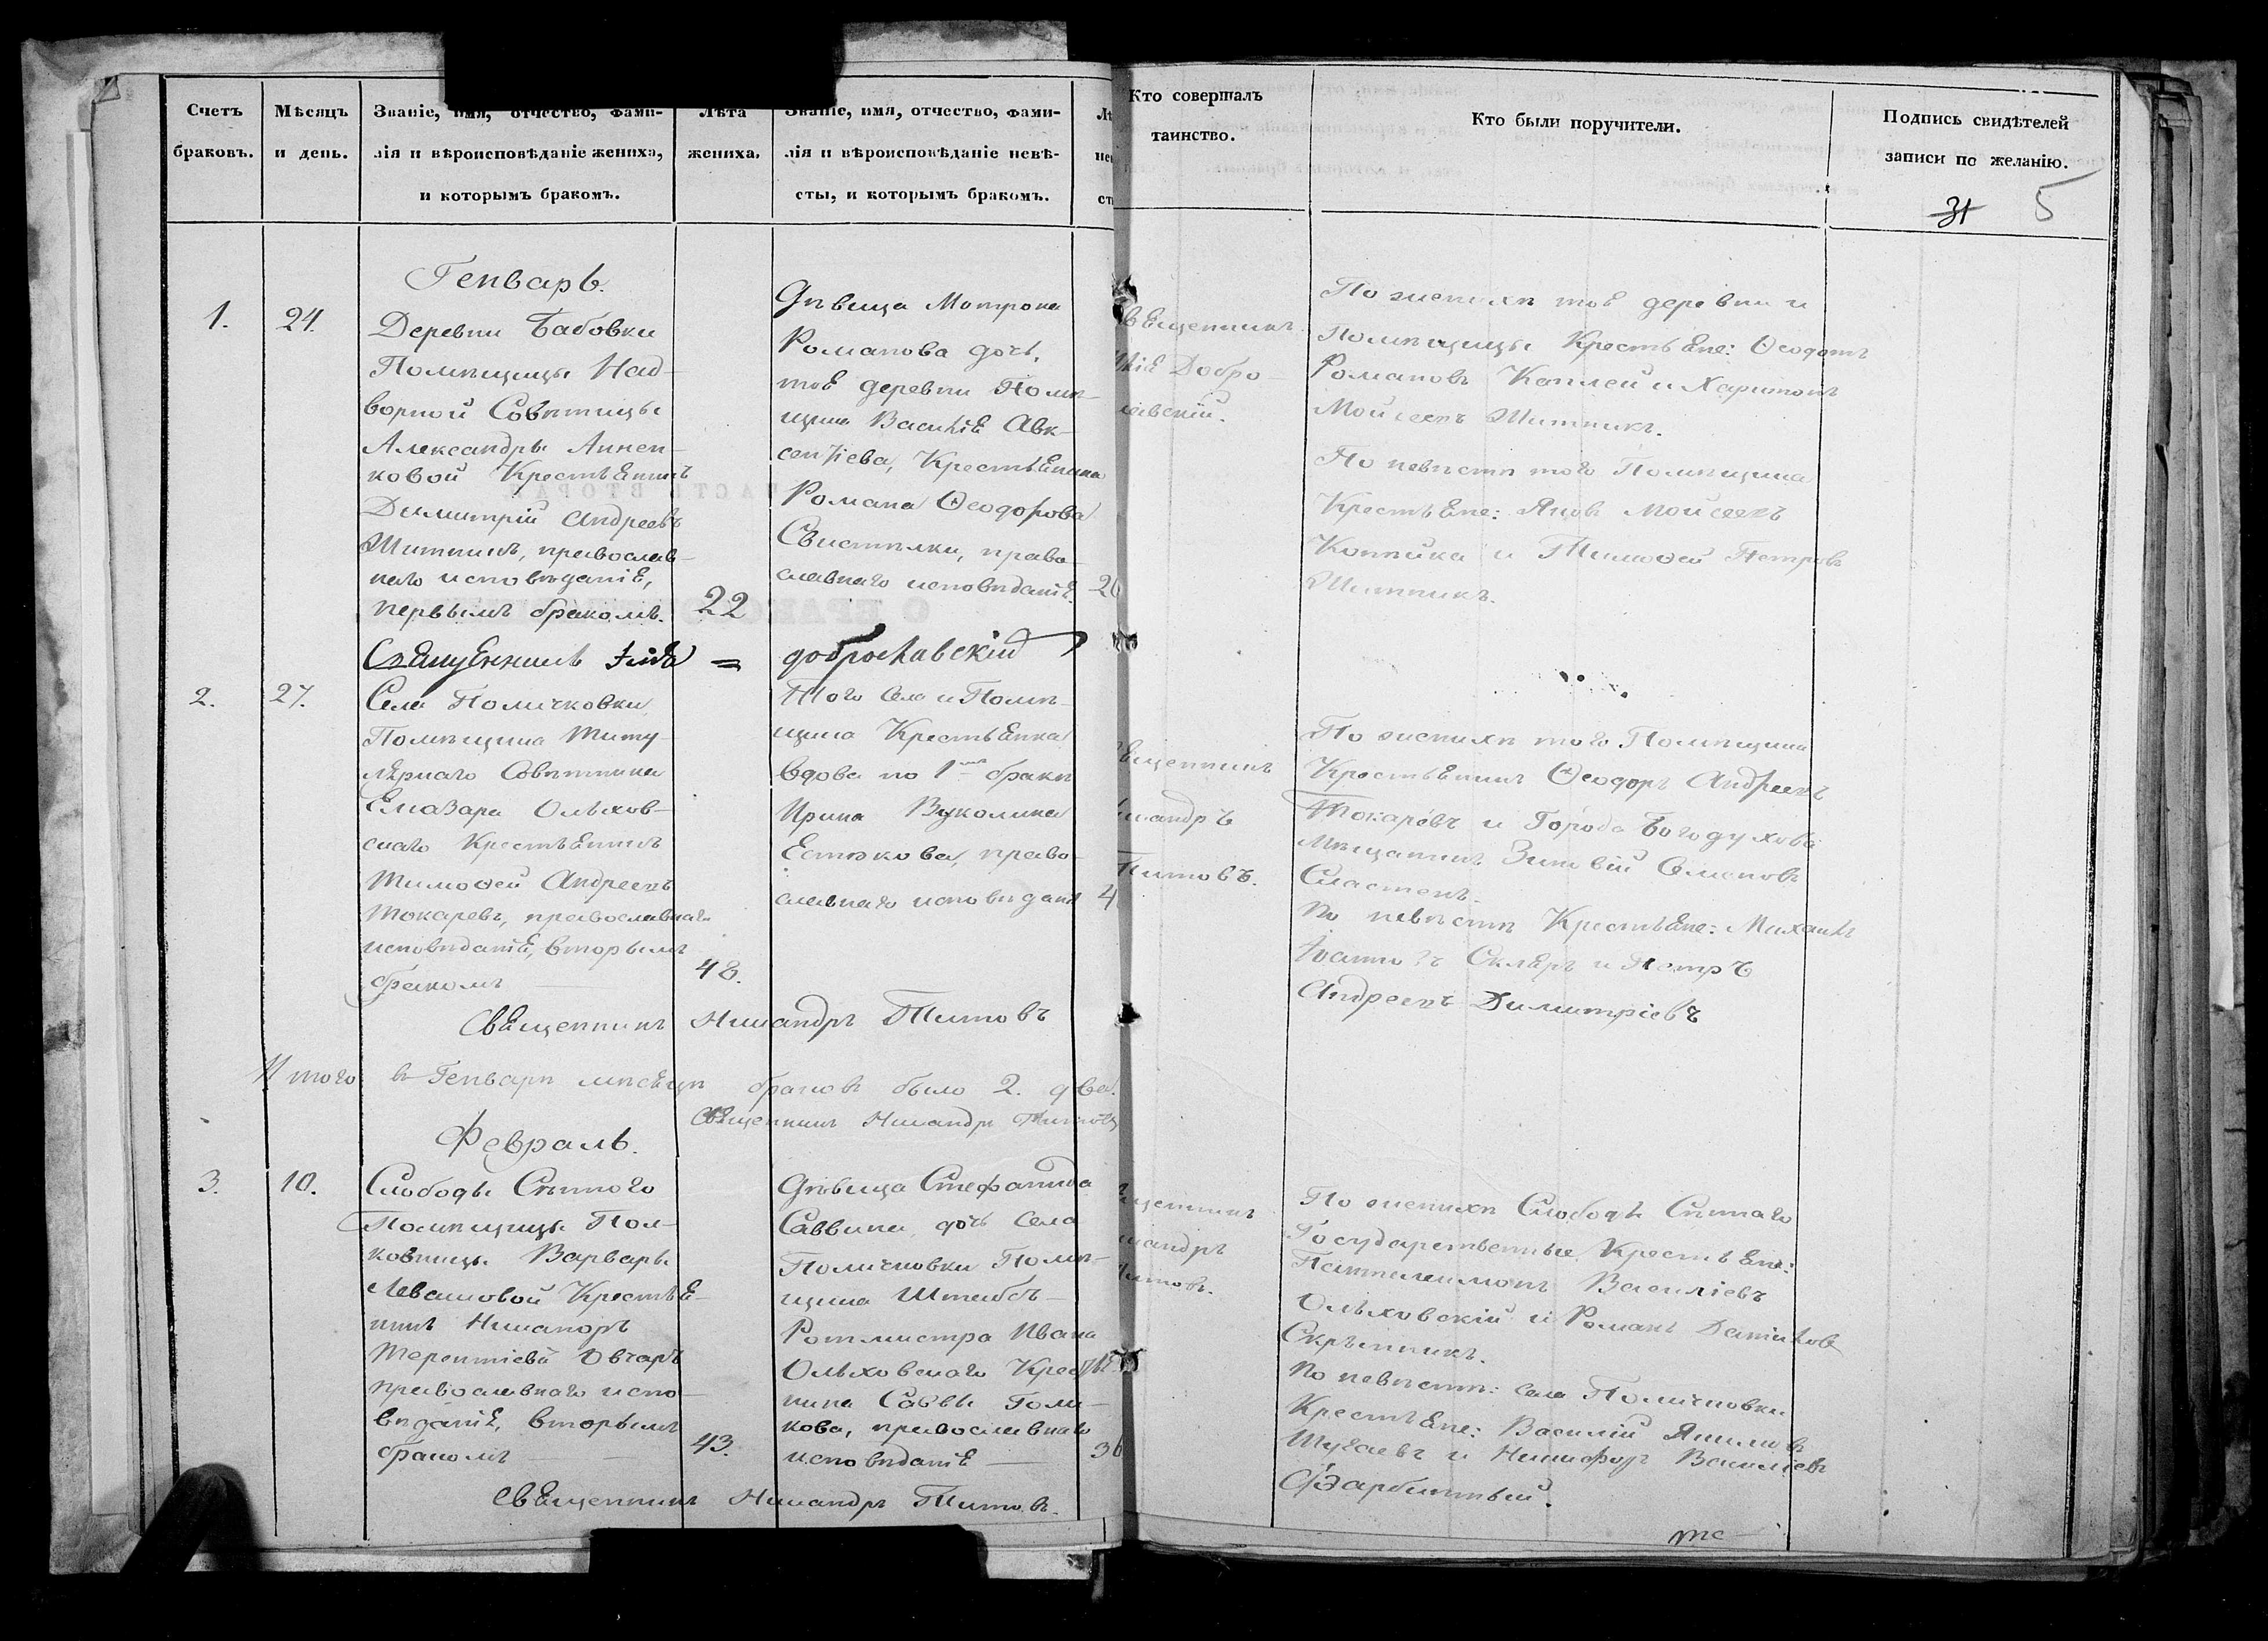 Счетъ
браковъ.
Мѣсяцъ
и день.
Званіе, имя, отчество, фами-
лія и вѣроисповѣданіе жениха,
и которымъ бракомъ.
Лѣта
жениха.
Званіе, имя, отчество, фами-
лія и вѣроисповѣданіе невѣ-
сты, и которымъ бракомъ.
Кто совершалъ
таинство.
Кто были поручители.
Подпись свидѣтелей
записи по желанію.
31 5
Генварь.
1.
24.
Деревни Бабовки
Помѣщицы Над-
ворной Совѣтницы
Александры Аннен-
ковой Крестьянинъ
Димитрій Андреевъ
Шитникъ, православ-
наго исповѣданія,
первымъ бракомъ.
22
Дѣвица Мотрона
Романова дочь,
тоя деревни Помѣ-
щика Василія Авк-
сентіева, Крестьянина
Романа Ѳеодорова
Свистѣлки, право-
славнаго исповѣданія.
Священникъ
Добро-
лавскій.
По женихѣ тоя деревни и
помѣщицы Крестьяне: Ѳеодотъ
Романовъ Каплей и Харитонъ
Мойсеевъ Шитникъ.
По невѣстѣ того Помѣщика
Крестьяне: Яковъ Мойсеевъ
Коппика и Тимоѳей Петровъ
Шитникъ.
Священникъ = доброславскій
2.
27.
Села Поличковки
Помѣщика Титу-
лярнаго Совѣтника
Елиазара Ольхов-
скаго Крестьянинъ
Тимоѳей Андреевъ
Токаревъ, православнаго
исповѣданія, вторымъ
бракомъ
48.
Того Села и Помѣ-
щика Крестьянка
вдова по 1 бракѣ
Ирина Вуколина
православнаго исповѣданія
Священникъ
Никандръ
Титовъ.
По женихѣ того Помѣщика
Крестьянинъ Ѳеодоръ Андреевъ
Токаревъ и Города Богодухова
Мѣщанинъ Зиновій Семеновъ
Сластенъ.
По невѣстѣ Крестьяне: Михаилъ
Іоанновъ Скляръ и Петръ
Андреевъ Димитріевъ
Священникъ Никандръ Титовъ
Итого въ Генварѣ мѣсяцѣ браковъ было 2. два.
Священникъ Никандръ Титовъ
Февраль.
3.
10.
Слободы Сѣннаго
Помѣщицы Пол-
ковницы Варвары
Левашовой Крестья-
нинъ Никаноръ
Терентіевъ Овчаръ
православнаго испо-
вѣданія, вторымъ
бракомъ
43.
Дѣвица Стефанида
Саввина дочь Села
Поличковки Помѣ-
щика Штабсъ-
Ротмистра Ивана
Ольховскаго Крестья-
нина Саввы Голи-
кова, православнаго
исповѣданія
Священникъ
Никандръ
Титовъ.
По женихѣ Слободы Сѣннаго
Государственные Крестьяне:
Пантелеимонъ Василіевъ
Ольховскій и Романъ Даниловъ
Скрынникъ.
По невѣстѣ: села Поличковки
Крестьяне: Василій Якимовъ
Шугаевъ и Никифоръ Василіевъ
Священникъ Никандръ Титовъ.